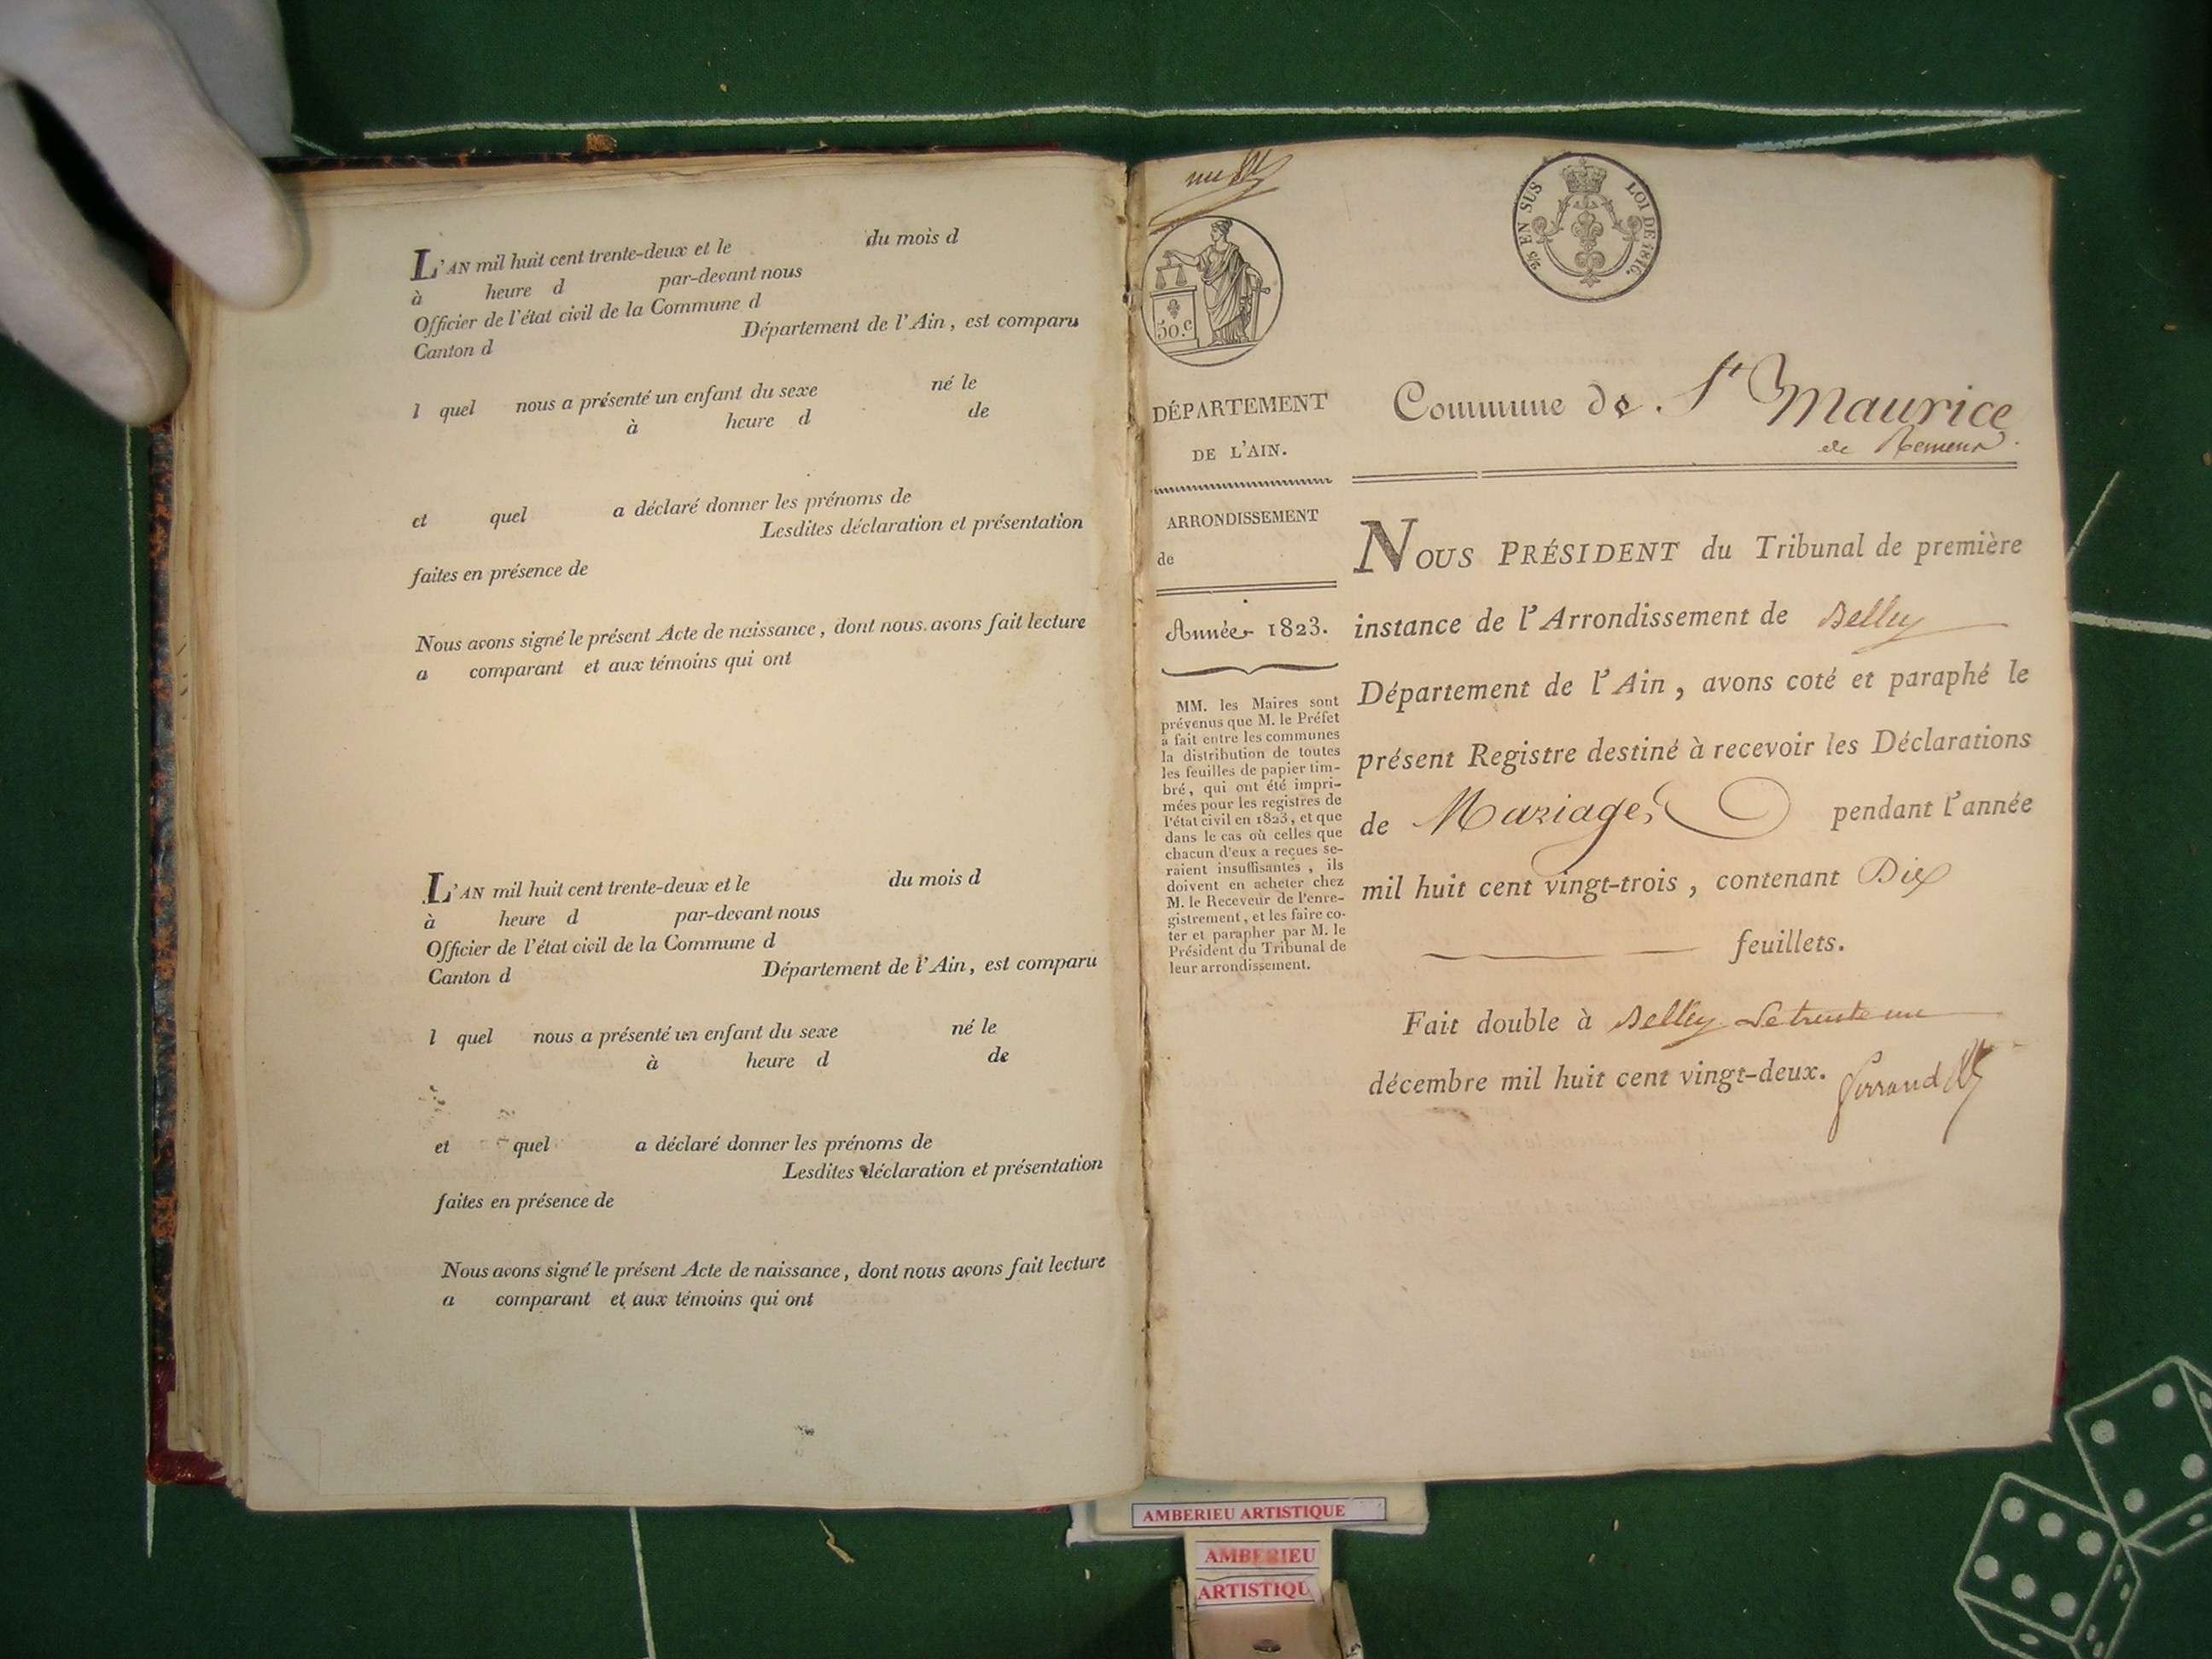 L'AN mil huit cent trente-deux et le du mois d
à heure d par-devant nous
Officier de l'état civil de la Commune d
Canton d Département de l'Ain, est comparu
l quel nous a présenté un enfant du sexe né le
à heure d de
et quel a déclaré donner les prénoms de
Lesdites déclaration et présentation
faites en présence de
Nous avons signé le présent Acte de naissance, dont nous avons fait lecture
a comparant et aux témoins qui ont
L'AN mil huit cent trente-deux et le du mois d
à heure d par-devant nous
Officier de l'état civil de la Commune d
Canton d Département de l'Ain, est comparu
l quel nous a présenté un enfant du sexe né le
à heure d de
et quel a déclaré donner les prénoms de
Lesdites déclaration et présentation
faites en présence de
Nous avons signé le présent Acte de naissance, dont nous avons fait lecture
a comparant et aux témoins qui ont
50.c
25 EN SUS LOI DE 1816.
DÉPARTEMENT
DE L'AIN.
ARRONDISSEMENT
de
Année 1823.
MM. les Maires sont
prévenus que M. le Préfet
a fait entre les communes
la distribution de toutes
les feuilles de papier tim-
bré, qui ont été impri-
mées pour les registres de
l'état civil en 1823, et que
dans le cas où celles que
chacun d'eux a reçues se-
raient insuffisantes, ils
doivent en acheter chez
M. le Receveur de l'enre-
gistrement, et les faire co-
ter et parapher par M. le
Président du Tribunal de
leur arrondissement.
Commune de St Maurice
de Remens
NOUS PRÉSIDENT du Tribunal de première
instance de l'Arrondissement de Belley
Département de l'Ain, avons coté et paraphé le
présent Registre destiné à recevoir les Déclarations
de Mariages pendant l'année
mil huit cent vingt-trois, contenant Dix
feuillets.
Fait double à Belley Le trente un
décembre mil huit cent vingt-deux.
AMBERIEU ARTISTIQUE
AMBERIEU
ARTISTIQU